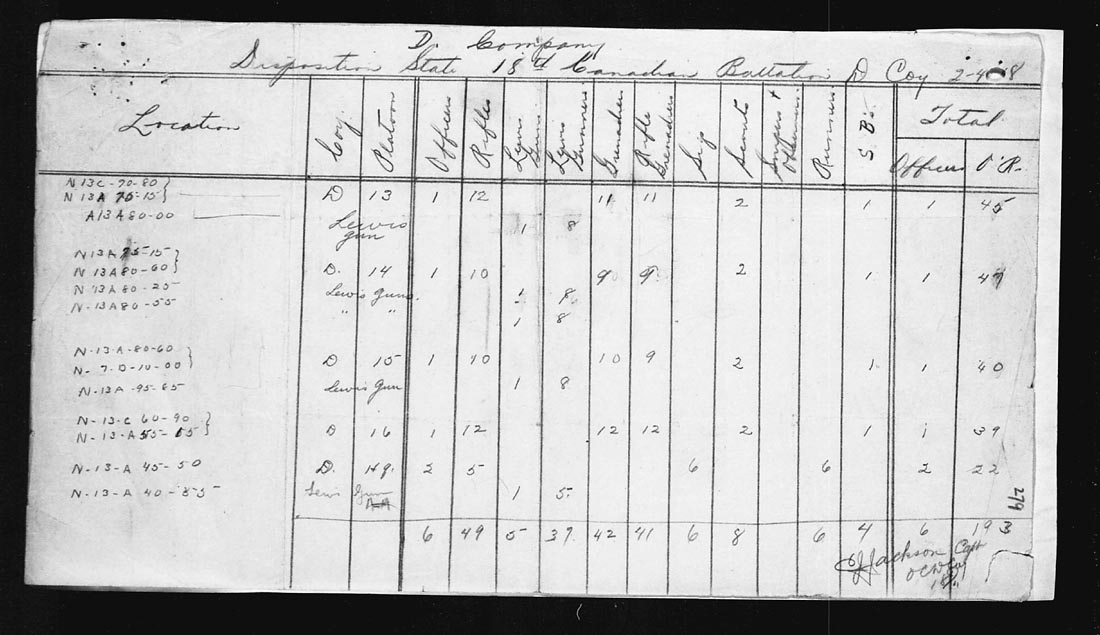 D Company
Disposition State 18th Canadian Battalion D Coy 2-4-18
Location Coy. Platoon Officers Rifles Lewis Guns Lewis Gunners Grenadiers Rifle Grenadiers Sig Scouts Snipers + Observers Runners S.B's. Total
Officers O.R.
N13C-70-80
N13A 75-15 D 13 1 12 11 11 2 1 1 45
A13A80-00 Lewis gun 1 8
N13A75-15
N13A80-60 D. 14 1 10 9 9 2 1 1 47
N13A80-25 Lewis Guns. 1 8
N-13A80-55 " " 1 8
N-13-A-80-60
N-7-D-10-00 D 15 1 10 10 9 2 1. 1 40
N-13A-95-85 Lewis Gun 1 8
N-13-C 60-90
N-13-A55-65 D 16 1 12 12 12 2 1 1 39
N-13-A 45-50 D. Hq. 2 5 6 6 2 22
N-13-A 40-55 Lewis Gun AA 1 5.
6 49 5 37 42 41 6 8 6 4 6 193
279
Jackson Capt
OC "D" Coy